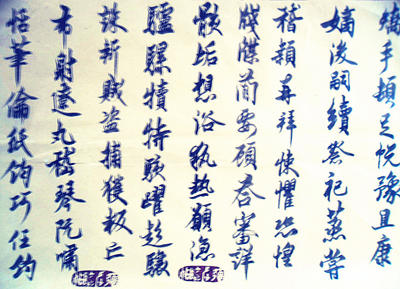 矯手頓足悅豫且康
嫡後嗣續祭祀蒸嘗
稽顙再拜悚懼恐惶
牋牒簡要顧答審詳
骸垢想浴執热願涼
驢騾犢特駭躍超驤
誅斬賊盗捕獲叛亡
布射遼丸嵇琴阮嘯
恬筆倫紙鈞巧任釣